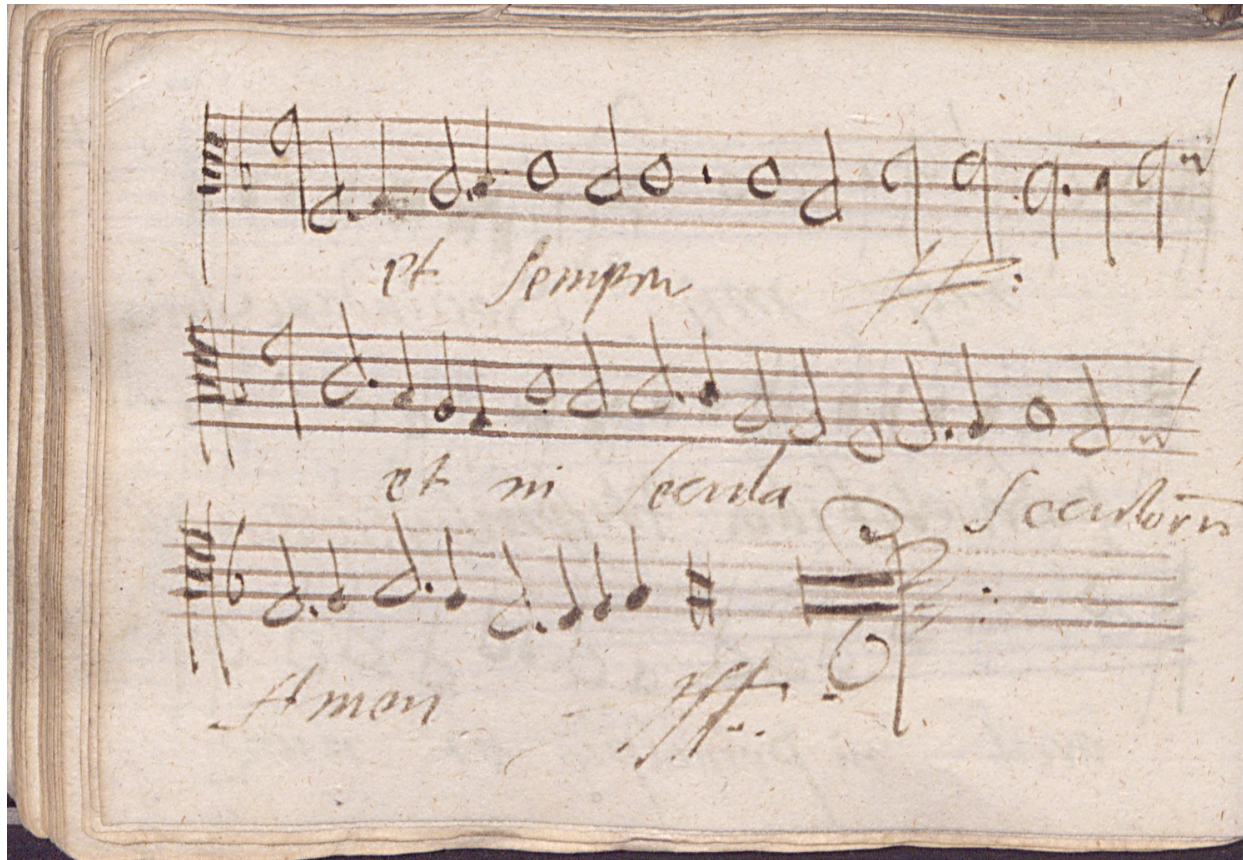 et semper
et in secula seculorū
Amen